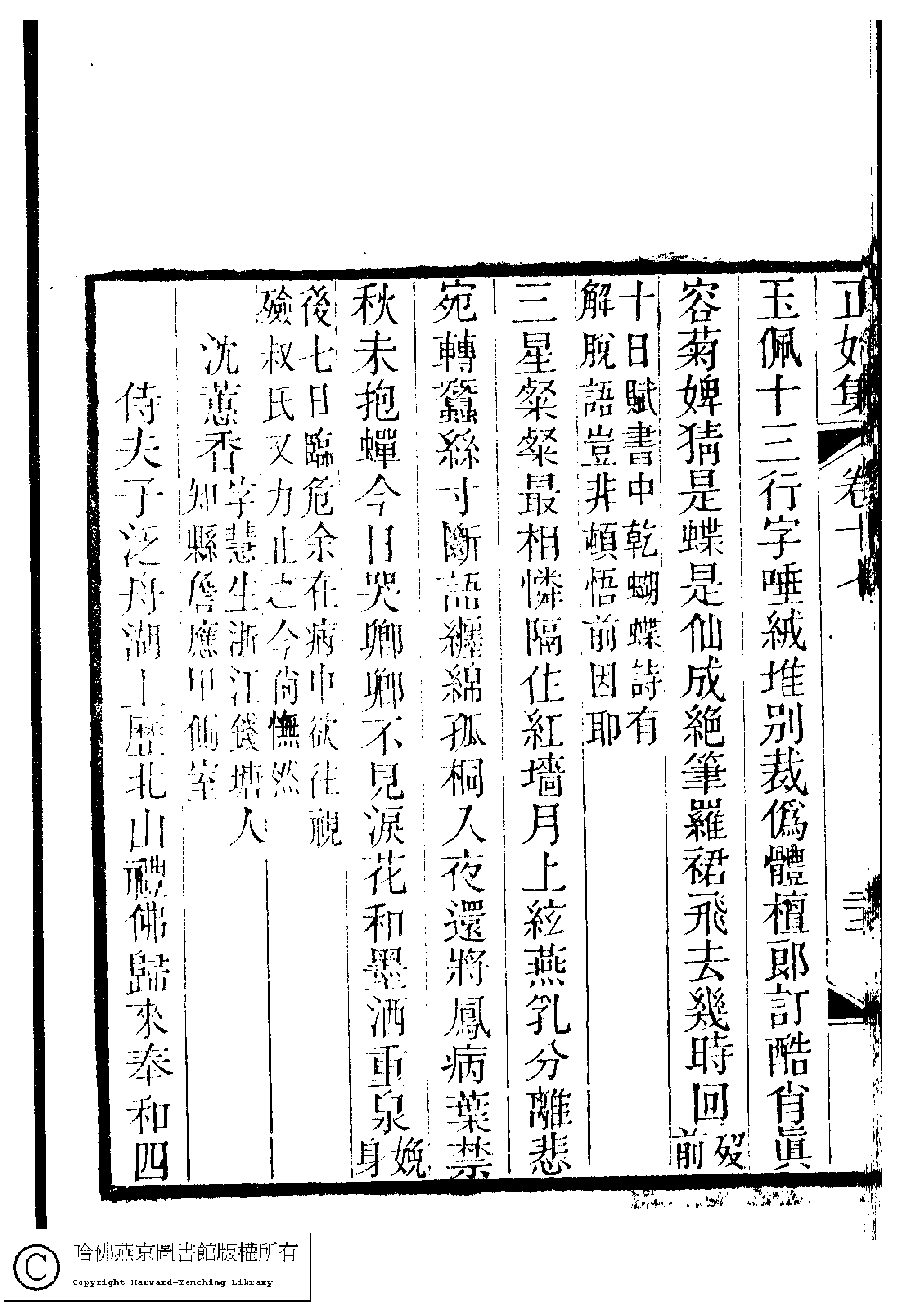 正始集 卷十 三
玉佩十三行字唾絨堆別裁僞體檀郎訂酷肖眞
容菊婢猜是蝶是仙成絕筆羅裙飛去幾時回歿前
十日賦書中乾蝴蝶詩有
解脫語豈非頓悟前因耶
三星粲粲最相憐隔住紅墻月上絃燕乳分離悲
宛轉蠶絲寸斷語纏綿孤桐入夜還將鳳病葉禁
秋未抱蟬今日哭卿卿不見淚花和墨洒重泉娩身
後七日臨危余在病中欲往視
殮叔氏又力止之今尙憮然
沈蕙香字慧生浙江錢塘人
知縣詹應甲側室
侍夫子泛舟湖上歷北山禮佛歸來奉和四
哈佛燕京圖書館版權所有
Copyright Harvard-Yenching Library